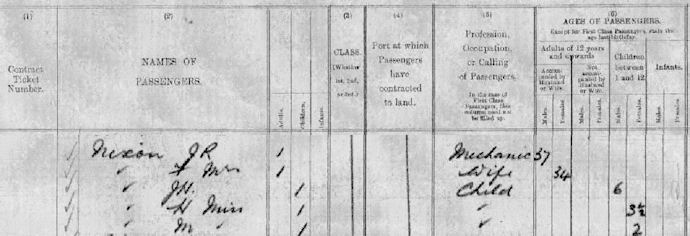 (1) (2) (3) (4) (5) (6)
Contract Ticket Number.
NAMES OF PASSENGERS.
Adults. Children. Infants.
CLASS. (Whether 1st, 2nd, or 3rd.)
Port at which Passengers have contracted to land.
Profession, Occupation, or Calling of Passengers.
In the case of First Class Passengers, this column need not be filled up.
AGES OF PASSENGERS.
Except for First Class Passengers, state the age last birthday.
Adults of 12 years and upwards
Accompanied by Husband or Wife.
Not accompanied by Husband or Wife.
Children between 1 and 12
Infants.
Males. Females. Males. Females. Males. Females. Males. Females.
Nixon J R 1 Mechanic 37
" Mrs 1 Wife 34
" J H. 1 Child 6
" H Miss 1 " 3½
" M 1 " 2